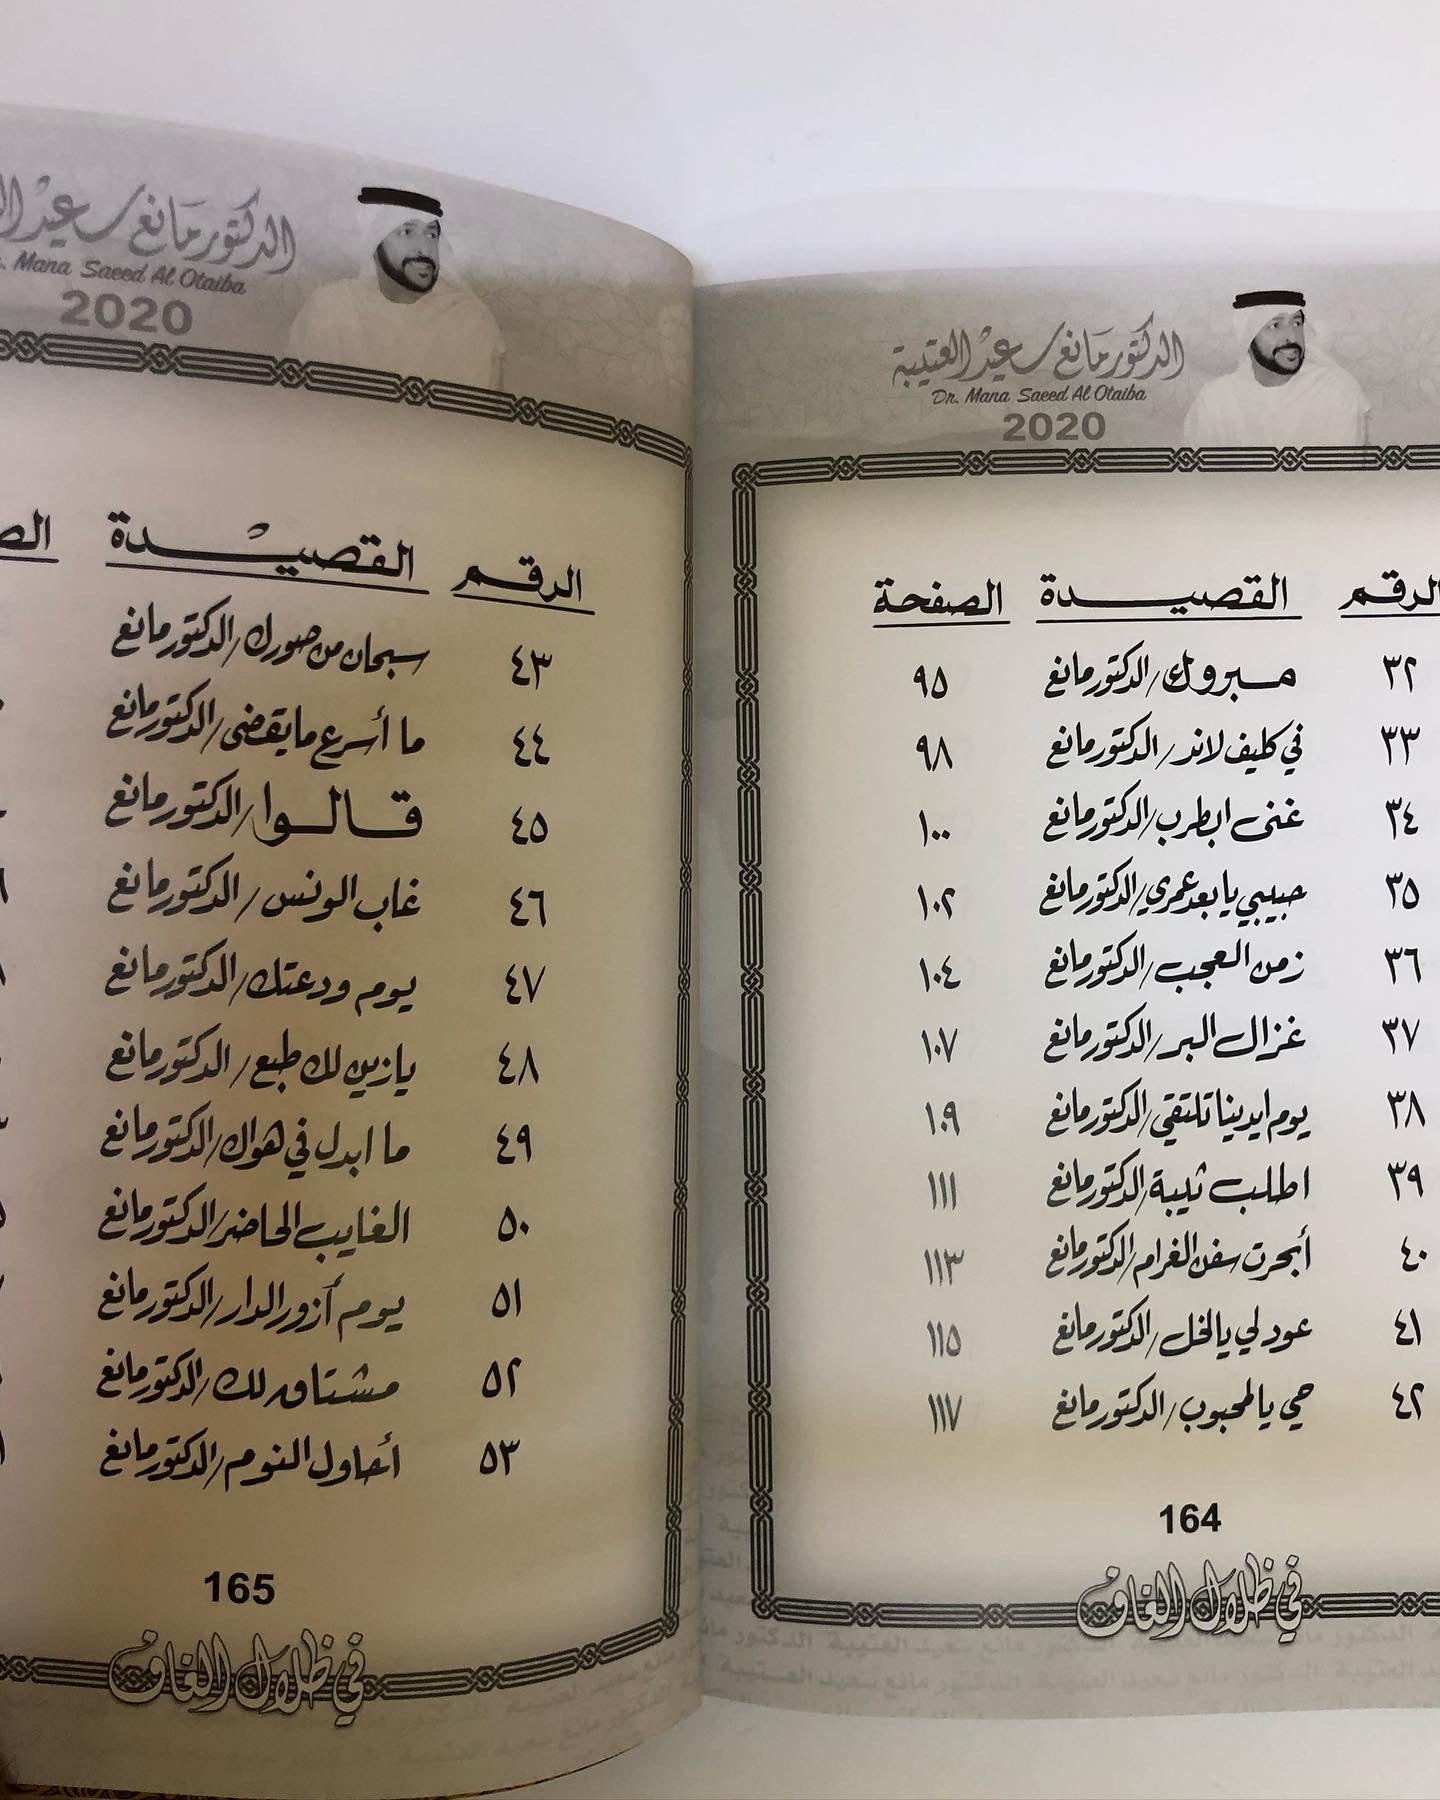 الدكتور مانع سعيد العتيبة
Dr. Mana Saeed Al Otaiba
2020
الرقم القصيدة الصفحة
٣٢ مبروك/الدكتور مانع ٩٥
٣٣ في كليف لاند/الدكتور مانع ٩٨
٣٤ غنى ابطرب/الدكتور مانع ١٠٠
٣٥ حبيبي يا بعد عمري/الدكتور مانع ١٠٢
٣٦ زمن العجب/الدكتور مانع ١٠٤
٣٧ غزال البر/الدكتور مانع ١٠٧
٣٨ يوم ايدينا تلتقي/الدكتور مانع ١٠٩
٣٩ اطلب ثيبة/الدكتور مانع ١١١
٤٠ أبحرت سفن الغرام/الدكتور مانع ١١٣
٤١ عود لي يالخل/الدكتور مانع ١١٥
٤٢ حي يالمحبوب/الدكتور مانع ١١٧
164
في ظلال الغاف
الدكتور مانع سعيد
Mana Saeed Al Otaiba
2020
الرقم القصيدة
٤٣ سبحان من صورك/الدكتور مانع
٤٤ ما أسرع ما يقضى/الدكتور مانع
٤٥ قالوا/الدكتور مانع
٤٦ غاب الونس/الدكتور مانع
٤٧ يوم ودعتك/الدكتور مانع
٤٨ يازين لك طبع/الدكتور مانع
٤٩ ما ابدل في هواك/الدكتور مانع
٥٠ الغايب الحاضر/الدكتور مانع
٥١ يوم أزور الدار/الدكتور مانع
٥٢ مشتاق لك/الدكتور مانع
٥٣ أحاول النوم/الدكتور مانع
165
في ظلال الغاف